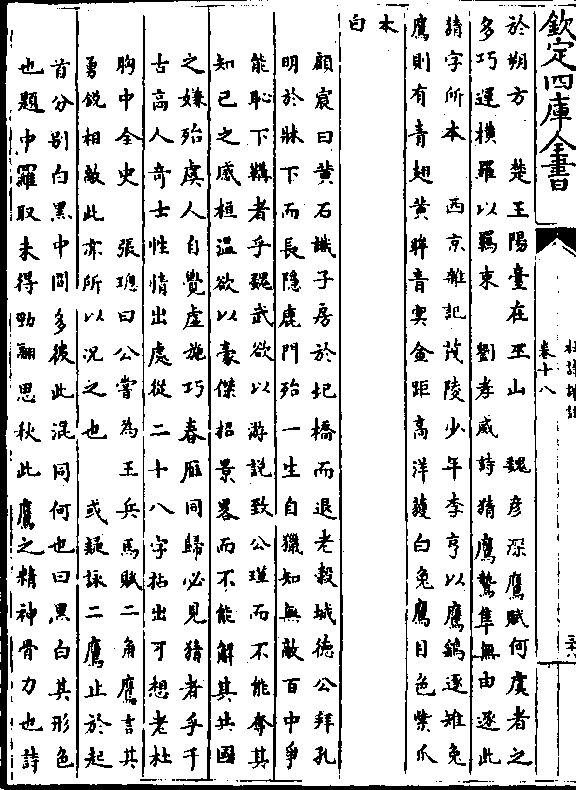 欽定四庫全書
卷十八
於朔方　楚王陽臺在巫山　魏彦深鷹賦何虞者之
多巧運橫羅以羈束　劉孝威詩猜鷹鷙隼無由逐此
請字所本　西京雜記茂陵少年李亨以鷹鷂逐雉兔
鷹則有青翅黄眸青冥金距高洋䕶白兔鷹目色紫爪
本白
顧宸曰黄石識子房於圯橋而退老榖城徳公拜孔
明於牀下而長隠鹿門殆一生自獵知無敵百中爭
能恥下韝者乎魏武欲以游説致公瑾而不能奪其
知已之感桓温欲以豪傑招景畧而不能解其共國
之嫌殆虞人自覺虚施巧春雁同歸必見猜者乎千
古高人竒士性情出處從二十八字拈出可想老杜
胸中全史　張璁曰公嘗為王兵馬賦二角鷹言其
勇鋭相敵此亦所以況之也　或疑詠二鷹止於起
首分别白黒中間多彼此混同何也曰黒白其形色
也題中羅取未得勁翮思秋此鷹之精神骨力也詩